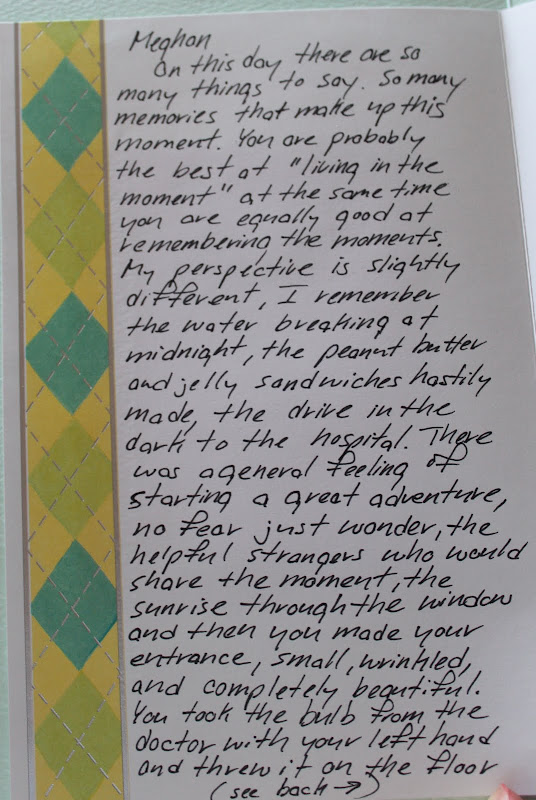 Meghan
On this day there are so
many things to say. So many
memories that make up this
moment. You are probably
the best at "living in the
moment" at the same time
you are equally good at
remembering the moments.
My perspective is slightly
different, I remember
the water breaking at
midnight, the peanut butter
and jelly sandwiches hastily
made, the drive in the
dark to the hospital. There
was a general feeling of
starting a great adventure,
no fear just wonder, the
helpful strangers who would
share the moment, the
sunrise through the window
and then you made your
entrance, small, wrinkled,
and completely beautiful.
You took the bulb from the
doctor with your left hand
and threw it on the floor
(see back →)